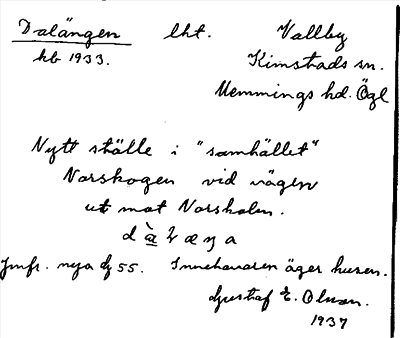 Dalängen lht. Vallby
hb 1933. Kimstads sn.
Memmings hd. Ögl
Nytt ställe i "samhället"
Norskogen vid vägen
ut mot Norsholm.
Jmfr. nya 55. Innehavaren äger husen.
Gustaf E. Olsson.
1937